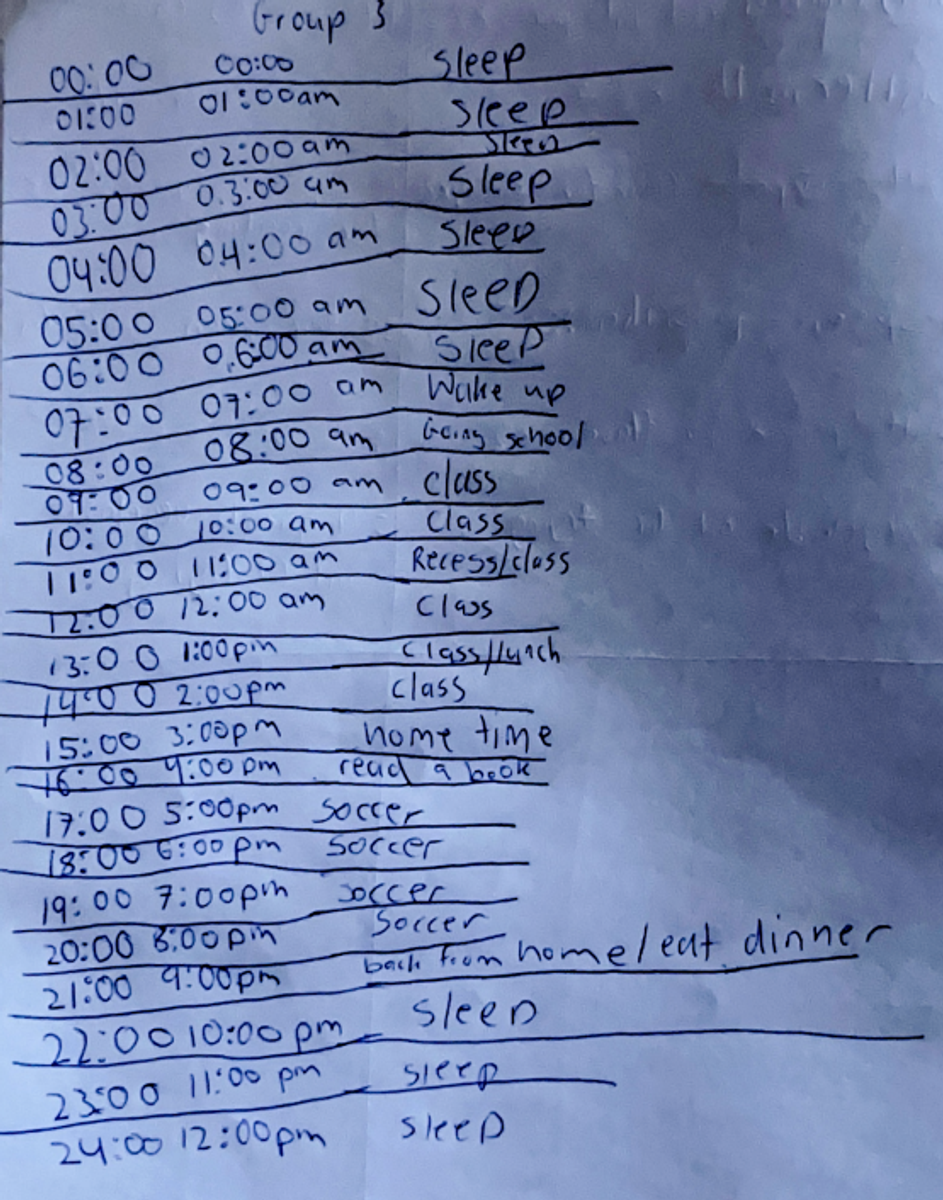 Group 3
00:00 00:00 Sleep
01:00 01:00am Sleep
02:00 02:00am Sleep
03:00 03:00 am Sleep
04:00 04:00 am Sleep
05:00 05:00 am Sleep
06:00 06:00 am Sleep
07:00 07:00 am Wake up
08:00 08:00 am Going school
09:00 09:00 am Class
10:00 10:00 am Class
11:00 11:00 am Recess/class
12:00 12:00 am Class
13:00 1:00pm Class/lunch
14:00 2:00pm Class
15:00 3:00pm home time
16:00 4:00pm read a book
17:00 5:00pm Soccer
18:00 6:00pm Soccer
19:00 7:00pm Soccer
20:00 8:00pm Soccer
21:00 9:00pm back from home/eat dinner
22:00 10:00 pm Sleep
23:00 11:00 pm Sleep
24:00 12:00pm Sleep